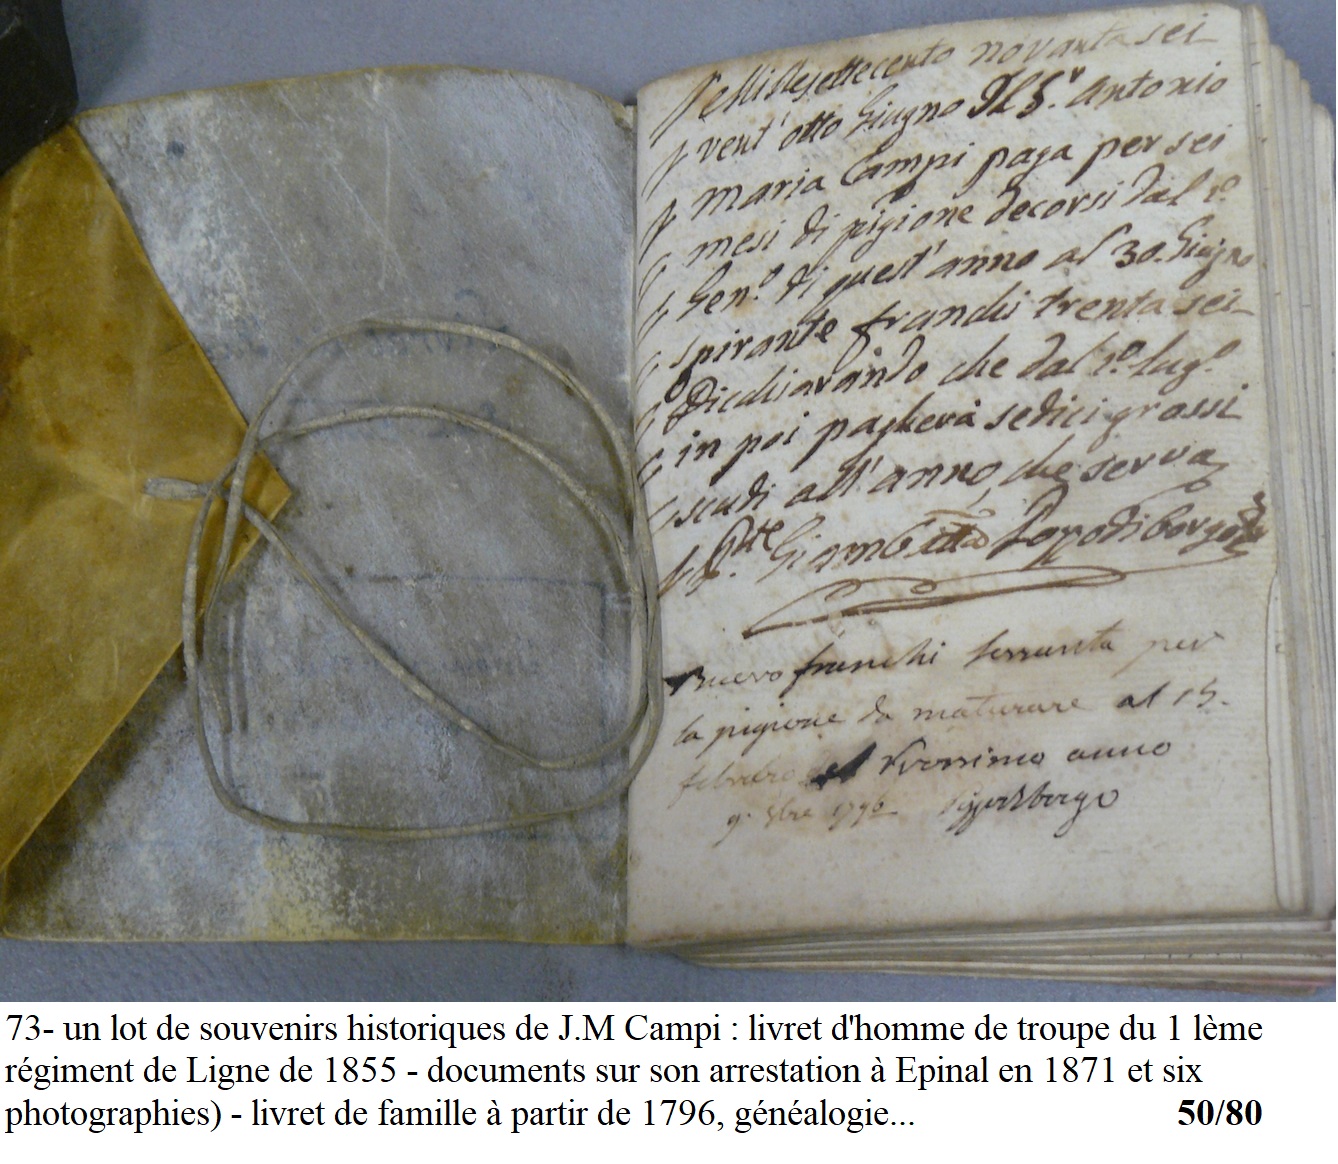 Nel Millesettecento novanta sei
vent'otto Giugno Il S.r Antonio
Maria Campi paga per sei
mesi di pigione decorsi dal 1.º
Gen.º di quest'anno al 30. Giugno
spirante franchi trenta sei
Dichiarando che dal 1.º lug.º
in poi pagherà sedici grossi
scudi all'anno, che serva
Giamb Pozzodiborgo
Ricevo franchi sessanta per
la pigione da maturare al 15.
febraro del prossimo anno
9. 1796 Pozzodiborgo
73- un lot de souvenirs historiques de J.M Campi : livret d'homme de troupe du 1 lème
régiment de Ligne de 1855 - documents sur son arrestation à Epinal en 1871 et six
photographies) - livret de famille à partir de 1796, généalogie... 50/80